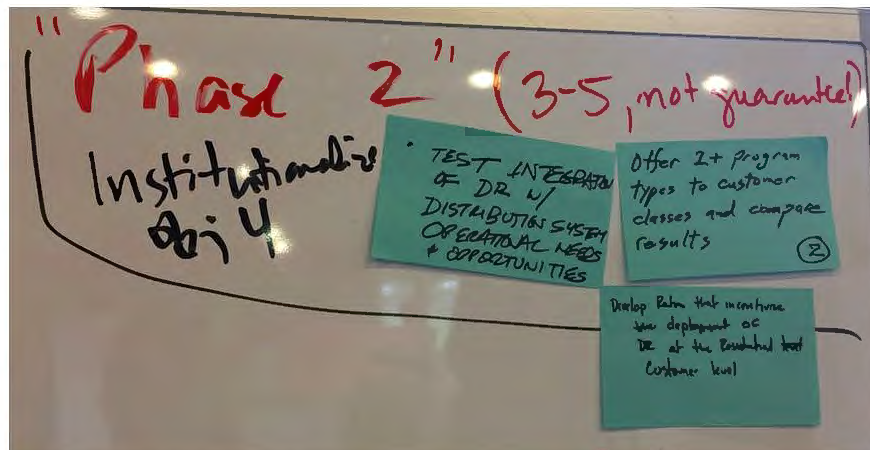 "Phase 2" (3-5, not guaranteed)
Institutionalize
Obj 4
• TEST INTEGRATION
OF DR W/
DISTRIBUTION SYSTEM
OPERATIONAL NEEDS
& OPPORTUNITIES
Offer 2+ program
types to customer
classes and compare
results
2
Develop Rates that incentivize
the deployment of
DR at the Residential
Customer level